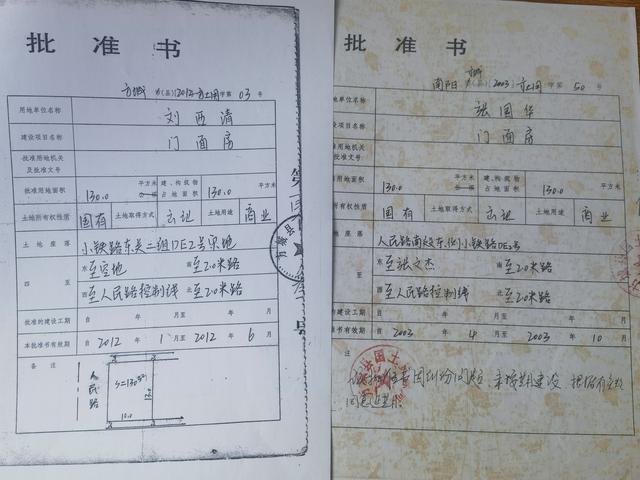 批准书
方城 市(县)(2012)方土用字第03号
用地单位名称 刘西清
建设项目名称 门面房
批准用地机关及批准文号
批准用地面积 130.0 平方米 建、构筑物占地面积 130.0 平方米
土地所有权性质 国有 土地取得方式 出让 土地用途 商业
土地座落 小铁路东关二组DE2号宗地
四至 东至空地 南至2.0米路
西至人民路控制线 北至2.0米路
批准的建设工期 自 年 月至 年 月
本批准书有效期 自2012年1月至2012年6月
备注
人民路
S=130m²
13.0
10.0
批准书
南阳 方城 市(县)(2003)方土用字第50号
用地单位名称 张国华
建设项目名称 门面房
批准用地机关及批准文号
用地面积 130.0 平方米 建、构筑物占地面积 130.0 平方米
所有权性质 国有 土地取得方式 出让 土地用途 商业
地座落 人民路南段东侧小铁路DE2号
东至张文杰 南至2.0米路
西至人民路控制线 北至2.0米路
的建设工期 自 年 月至 年 月
书有效期 自2003年4月至2003年10月